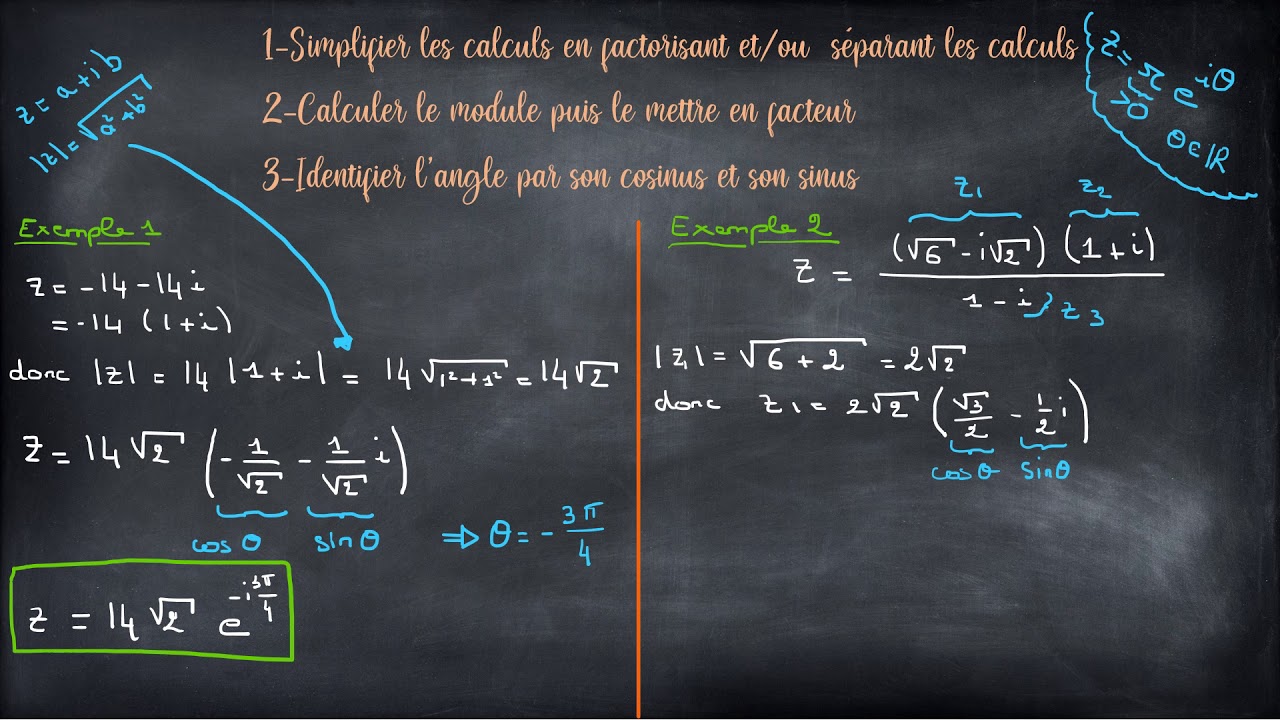 1-Simplifier les calculs en factorisant et/ou séparant les calculs
2-Calculer le module puis le mettre en facteur
3-Identifier l'angle par son cosinus et son sinus
z = a + ib
|z| = √(a² + b²)
z = r e^{iθ}
>0
θ ∈ ℝ
Exemple 1
z = -14 - 14i
= -14 (1+i)
donc |z| = 14 |1+i| = 14√(1²+1²) = 14√2
z = 14√2 (-1/√2 - 1/√2 i)
cos θ sin θ ⇒ θ = -3π/4
z = 14√2 e^{-i3π/4}
Exemple 2
z₁ z₂
z = (√6 - i√2) (1+i) / 1 - i } z₃
|z₁| = √(6+2) = 2√2
donc z₁ = 2√2 (√3/2 - 1/2 i)
cos θ sin θ